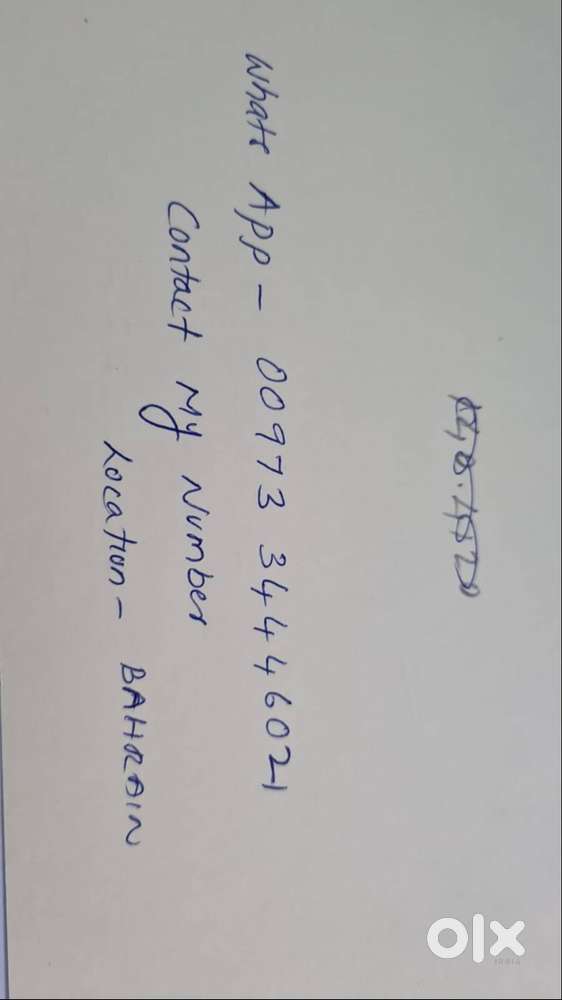 Whats App - 00973 34446021
Contact My Number
Location - BAHRAIN
olx
INDIA